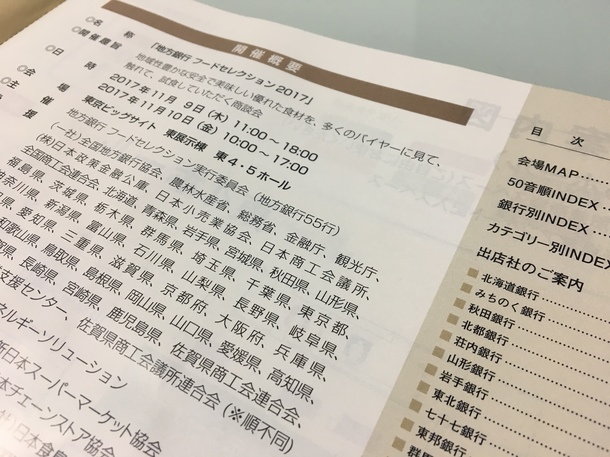 開催概要
◎名称 「地方銀行 フードセレクション 2017」
◎開催趣旨 地域性豊かな安全で美味しい優れた食材を、多くのバイヤーに見て、
触れて、試食していただく商談会
◎日時 2017年11月 9日(木) 11:00~18:00
2017年11月10日(金) 10:00~17:00
◎会場 東京ビッグサイト 東展示棟 東4・5ホール
主催 地方銀行 フードセレクション実行委員会 (地方銀行55行)
援 (一社)全国地方銀行協会、農林水産省、総務省、金融庁、観光庁、
(株)日本政策金融公庫、日本小売業協会、日本商工会議所、
全国商工会連合会、北海道、青森県、岩手県、宮城県、秋田県、山形県、
福島県、茨城県、栃木県、群馬県、埼玉県、千葉県、東京都、
神奈川県、新潟県、富山県、石川県、山梨県、長野県、岐阜県、
愛知県、三重県、滋賀県、京都府、大阪府、兵庫県、
和歌山県、鳥取県、島根県、岡山県、山口県、愛媛県、高知県、
長崎県、宮崎県、鹿児島県、佐賀県商工会連合会、
支援センター、佐賀県商工会議所連合会 (※順不同)
ネルギーソリューション
新日本スーパーマーケット協会
本チェーンストア協会
日本食
目次
会場MAP
50音順INDEX
銀行別INDEX
カテゴリー別INDEX
出店社のご案内
北海道銀行
みちのく銀行
秋田銀行
北都銀行
荘内銀行
山形銀行
岩手銀行
東北銀行
七十七銀行
東邦銀行
群馬